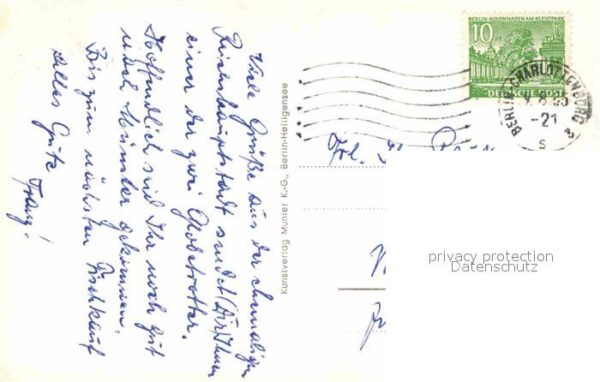 Viele Grüße aus der ehemaligen
Reichshauptstadt sendet (Dir) Ihnen
einer der zwei Globetrotter.
Hoffentlich sind Ihr noch gut
nach gekommen.
Bis zum nächsten
alles Gute
Franz!
Kunstverlag Muhler K.-G., Berlin-Heiligensee
BERLIN-KOLONNADEN AM KLEISTPARK
10
DEUTSCHE POST
BERLIN-CHARLOTTENBURG
-21
s
Frl.
privacy protection
Datenschutz